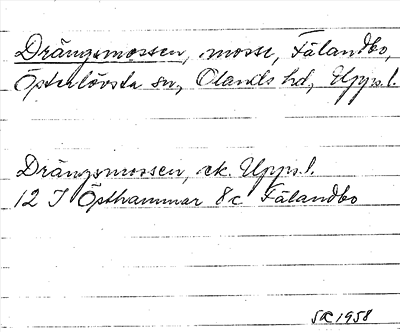 Drängsmossen, mosse, Fälandbo,
Österlövsta sn, Olands hd, Upps.l.
Drängsmossen, ek. Upps.l.
12 I Östhammar 8c Fälandbo
SR 1958